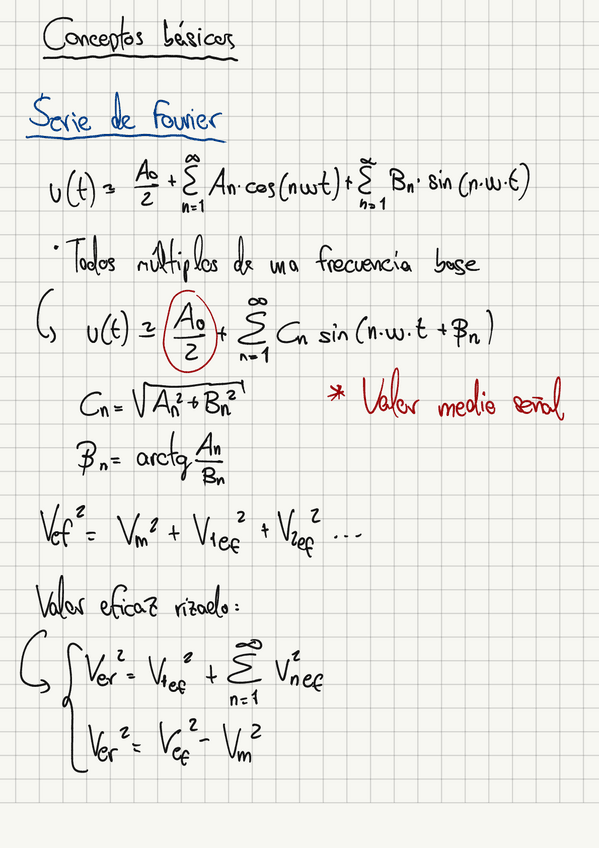 Conceptos básicos
Serie de Fourier
u(t) = A₀/2 + ∞ Σ n=1 An·cos(nwt) + ∞ Σ n=1 Bn·sin(n·w·t)
· Todos múltiplos de una frecuencia base
u(t) = A₀/2 + ∞ Σ n=1 Cn sin(n·w·t + βn)
Cn = √(An² + Bn²) * Valor medio señal
βn = arctg An/Bn
Vef² = Vm² + V1ef² + V2ef² ...
Valor eficaz rizado:
Ver² = V1ef² + ∞ Σ n=1 Vnef²
Ver² = Vef² - Vm²